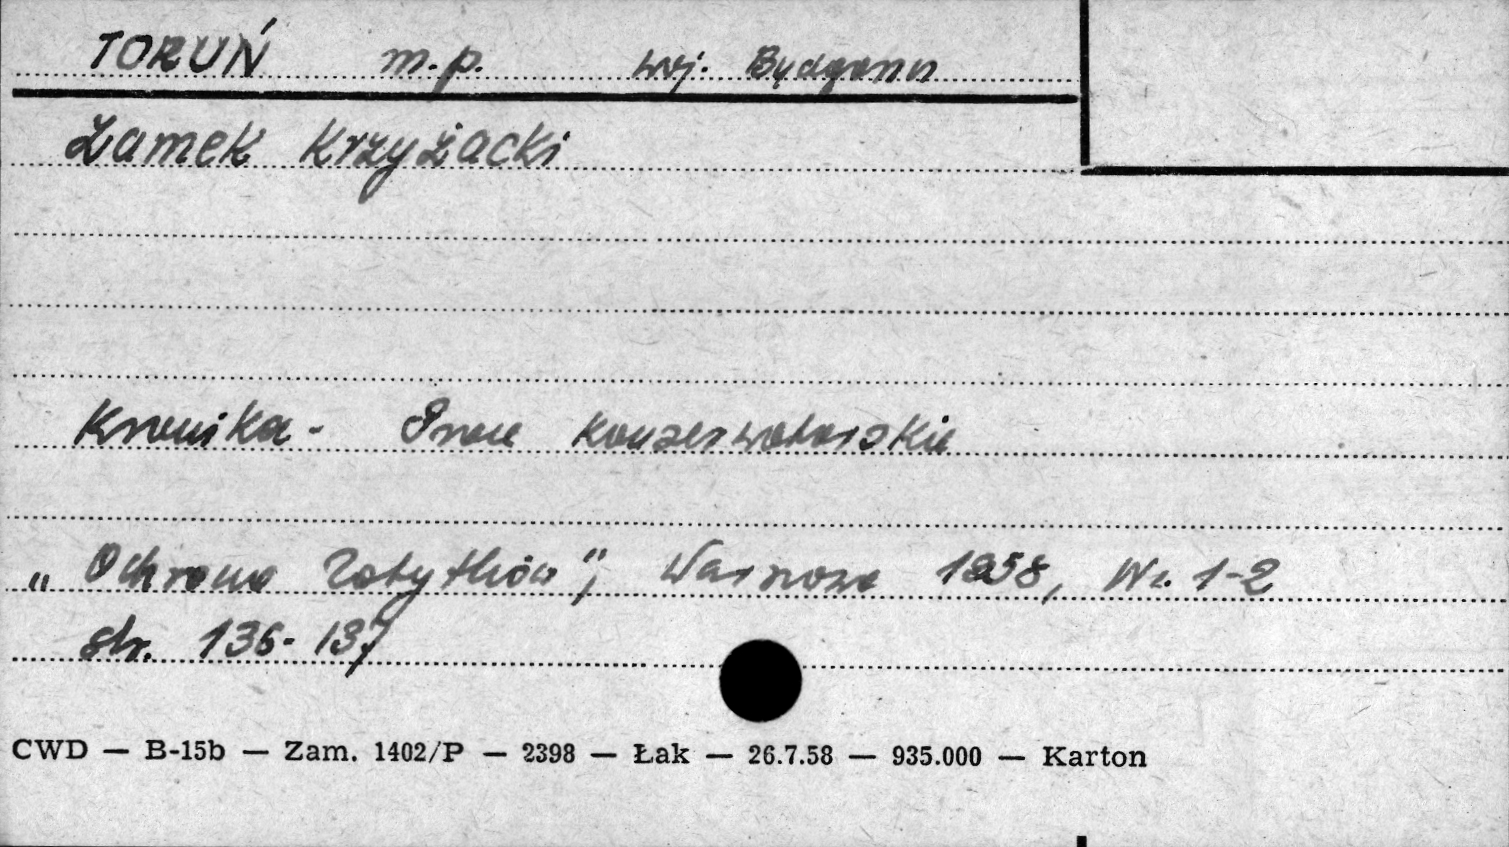 TORUŃ m.p. woj. Bydgoszcz
Zamek Krzyżacki
Kronika - Prace konserwatorskie
„Ochrona Zabytków”, Warszawa 1958, Nr. 1-2
str. 136-137
CWD — B-15b — Zam. 1402/P — 2398 — Łak — 26.7.58 — 935.000 — Karton